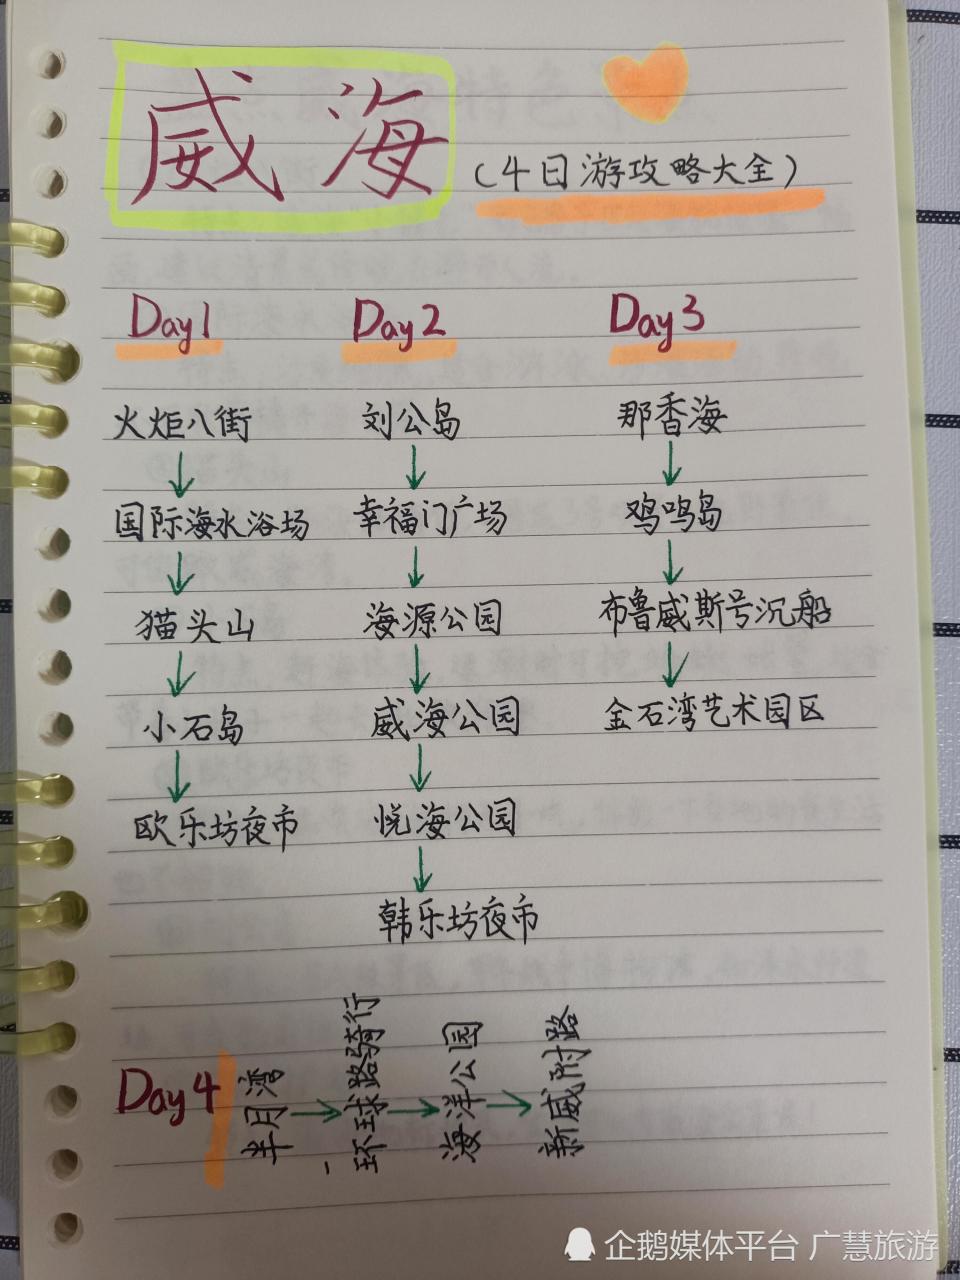 威海
(4日游攻略大全)
Day1
火炬八街
国际海水浴场
猫头山
小石岛
欧乐坊夜市
Day2
刘公岛
幸福门广场
海源公园
威海公园
悦海公园
韩乐坊夜市
Day3
那香海
鸡鸣岛
布鲁威斯号沉船
金石湾艺术园区
Day4
半月湾
环球路骑行
海洋公园
新威附路
企鹅媒体平台 广慧旅游